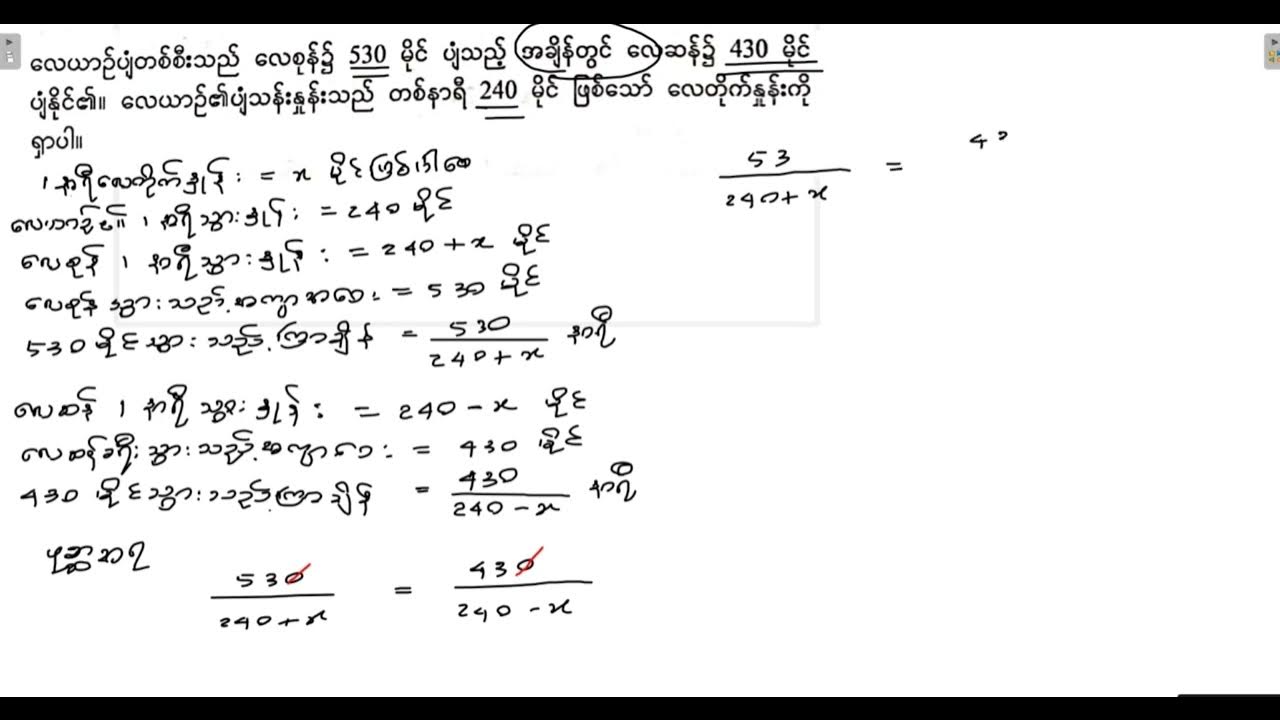 လေယာဉ်ပျံတစ်စီးသည် လေစုန်၌ 530 မိုင် ပျံသည့် အချိန်တွင် လေဆန်၌ 430 မိုင်
ပျံနိုင်၏။ လေယာဉ်၏ပျံသန်းနှုန်းသည် တစ်နာရီ 240 မိုင် ဖြစ်သော် လေတိုက်နှုန်းကို
ရှာပါ။
၊ နာရီလေတိုက်နှုန်း = x မိုင်ဖြစ်ပါစေ
လေယာဉ်၏ ၊ နာရီသွားနှုန်း = 240 မိုင်
လေစုန် ၊ နာရီသွားနှုန်း = 240 + x မိုင်
လေစုန် သွားသည့်အကွာအဝေး = 530 မိုင်
530 မိုင်သွားသည့်ကြာချိန် = 530 / 240 + x နာရီ
လေဆန် ၊ နာရီသွားနှုန်း = 240 - x မိုင်
လေဆန်ခရီးသွားသည့်အကွာဝေး = 430 မိုင်
430 မိုင်သွားသည့်ကြာချိန် = 430 / 240 - x နာရီ
ပုစ္ဆာအရ
530 / 240 + x = 430 / 240 - x
53 / 240 + x = 4